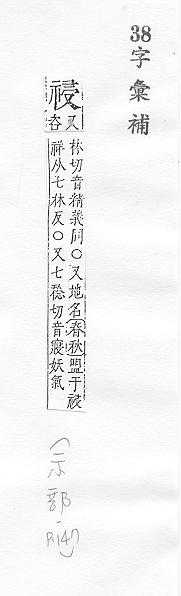 38字彙補
祲
又
咨
林切音精義同〇又地名春秋盟于祲
祥从七林反〇又七稔切音寢妖氣
(示部